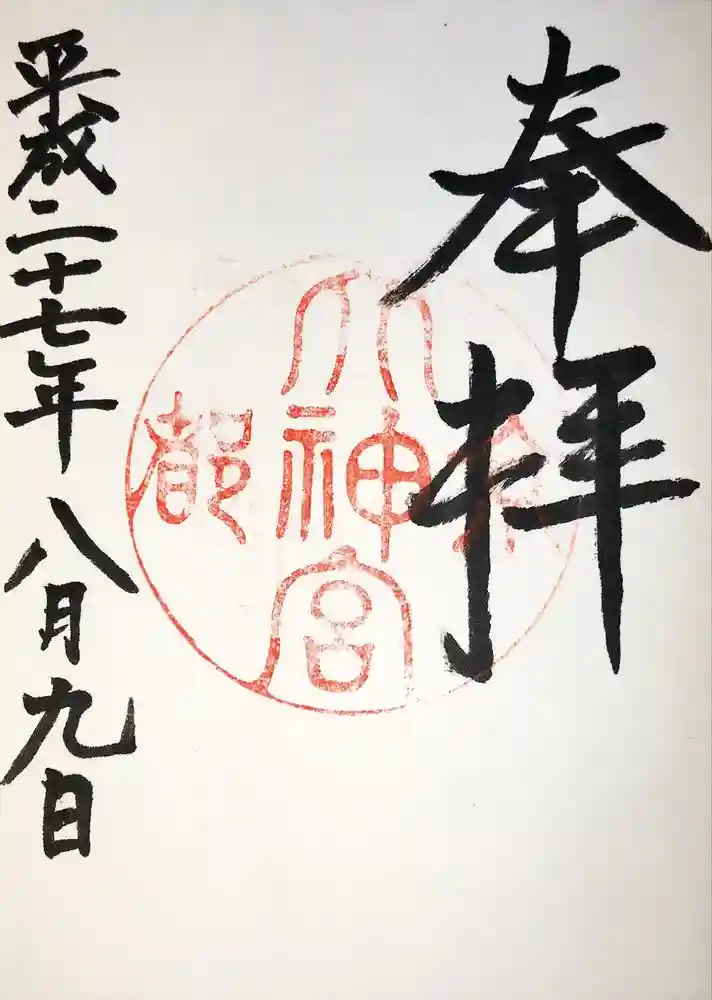 奉拝
京都大神宮
平成二十七年八月九日